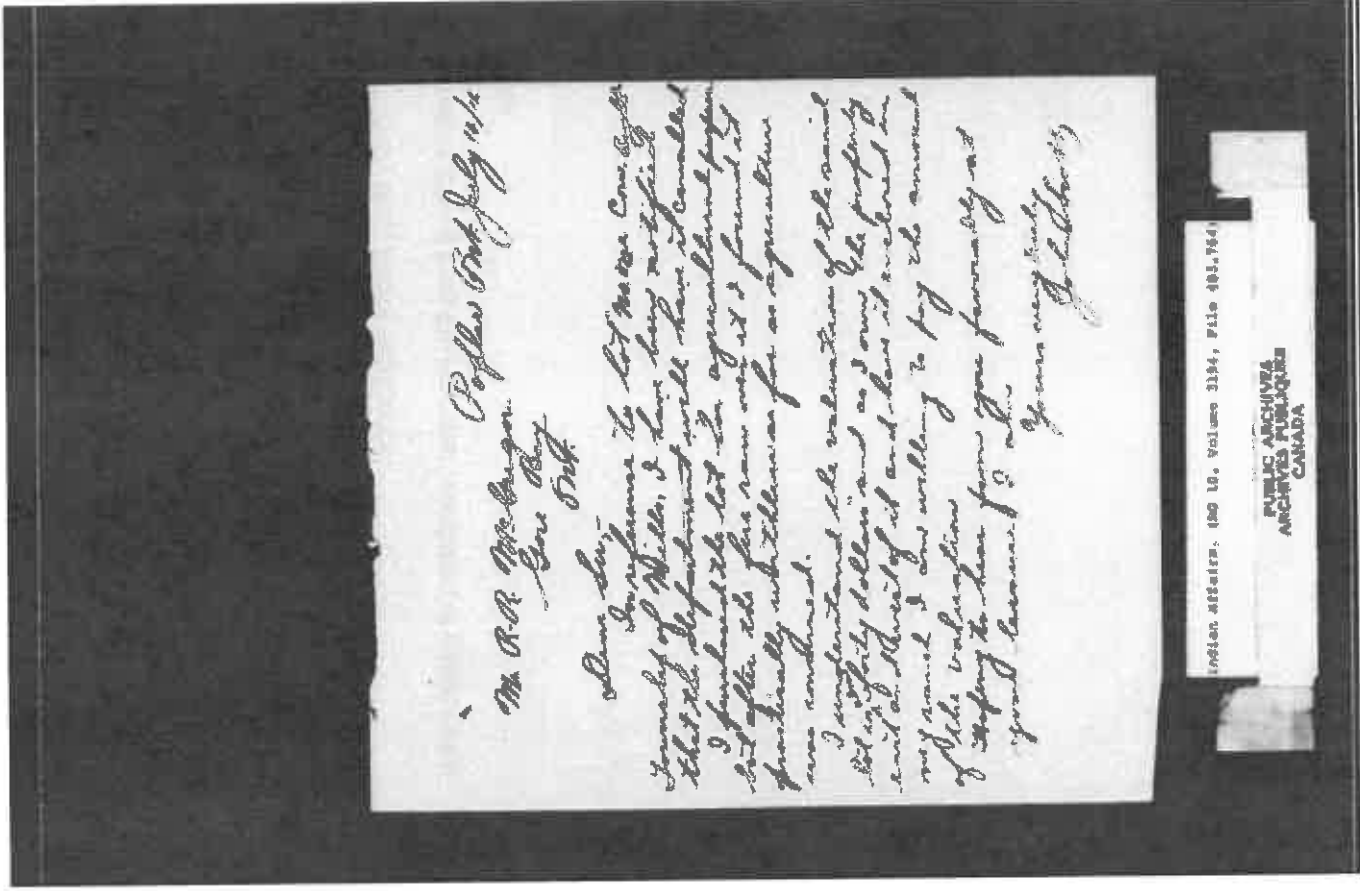 July 10/12
Mr R. R. McGregor
Gore Bay
Ont.
Dear Sir;
In reference to lot No Con.
Township of Mills, I have been notified
that the Department will have it cancelled
I purchased the lot for agricultural purposes
but after the fire ran over it I found it
practically worthless as far as agriculture
was concerned.
I understand the valuation of the said
lot is forty dollars and as I own the property
east and west of it and have it enclosed in
my ranch I am willing to pay the amount
of the valuation
Hoping to hear from you favorably at
your
Yours very truly
Indian Affairs. (RG 10, Volume 3194, File 483,764)
PUBLIC ARCHIVES
ARCHIVES PUBLIQUES
CANADA